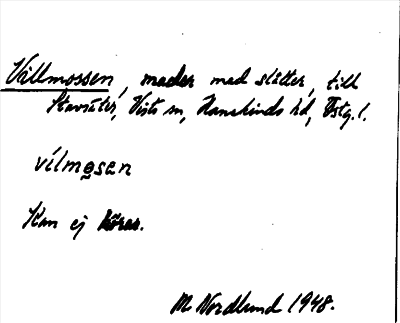 Vällmossen, mader med slåtter, till
Stavsäter, Vists sn, Hanekinds hd, Östg. l.
vílmo̲sen
Kan ej köras.
M. Nordlund 1948.